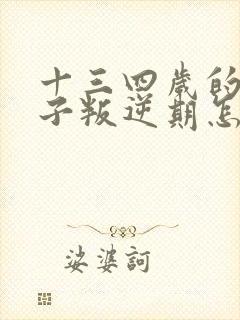 十三四岁的
子叛逆期怎
娑婆訶